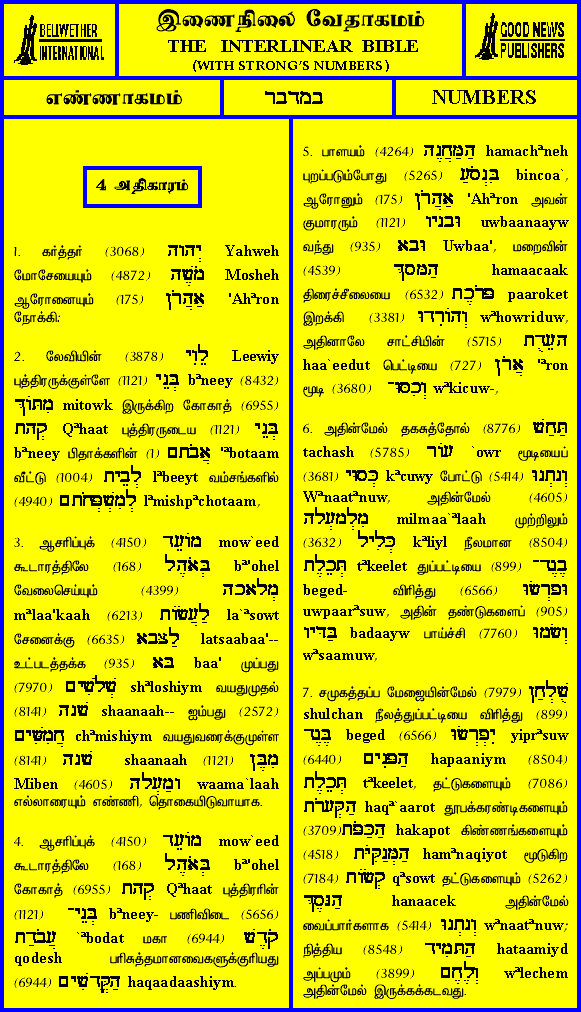 BELLWETHER
INTERNATIONAL
இணைநிலை வேதாகமம்
THE INTERLINEAR BIBLE
(WITH STRONG'S NUMBERS)
GOOD NEWS
PUBLISHERS
எண்ணாகமம்
במדבר
NUMBERS
4 அதிகாரம்
1. கர்த்தர் (3068) יְהוָה Yahweh
மோசேயையும் (4872) מֹשֶׁה Mosheh
ஆரோனையும் (175) אַהֲרֹן 'Ahªron
நோக்கி:
2. லேவியின் (3878) לֵוִי Leewiy
புத்திரருக்குள்ளே (1121) בְּנֵי bªneey (8432)
מִתּוֹךְ mitowk இருக்கிற கோகாத் (6955)
קְהָת Qªhaat புத்திரருடைய (1121) בְּנֵי
bªneey பிதாக்களின் (1) אֲבֹתָם 'ªbotaam
வீட்டு (1004) לְבֵית lªbeeyt வம்சங்களில்
(4940) לְמִשְׁפְּחֹתָם lªmishpªchotaam,
3. ஆசரிப்புக் (4150) מוֹעֵד mow`eed
கூடாரத்திலே (168) בְּאֹהֶל bª'ohel
வேலைசெய்யும் (4399) מְלָאכָה
mªlaa'kaah (6213) לַעֲשׂוֹת la`ªsowt
சேனைக்கு (6635) לַצָּבָא latsaabaa'--
உட்படத்தக்க (935) בָּא baa' முப்பது
(7970) שְׁלֹשִׁים shªloshiym வயதுமுதல்
(8141) שָׁנָה shaanaah-- ஐம்பது (2572)
חֲמִשִּׁים chªmishiym வயதுவரைக்குமுள்ள
(8141) שָׁנָה shaanaah (1121) מִבֶּן
Miben (4605) וּמַעְלָה waama`laah
எல்லாரையும் எண்ணி, தொகையிடுவாயாக.
4. ஆசரிப்புக் (4150) מוֹעֵד mow`eed
கூடாரத்திலே (168) בְּאֹהֶל bª'ohel
கோகாத் (6955) קְהָת Qªhaat புத்திரரின்
(1121) בְּנֵי־ bªneey- பணிவிடை (5656)
עֲבֹדַת `ªbodat மகா (6944) קֹדֶשׁ
qodesh பரிசுத்தமானவைகளுக்குரியது
(6944) הַקֳּדָשִׁים haqaadaashiym.
5. பாளயம் (4264) הַמַּחֲנֶה hamachªneh
புறப்படும்போது (5265) בִּנְסֹעַ bincoa`,
ஆரோனும் (175) אַהֲרֹן 'Ahªron அவன்
குமாரரும் (1121) וּבָנָיו uwbaanaayw
வந்து (935) וּבָא Uwbaa', மறைவின்
(4539) הַמָּסָךְ hamaacaak
திரைச்சீலையை (6532) פָּרֹכֶת paaroket
இறக்கி (3381) וְהוֹרִדוּ wªhowriduw,
அதினாலே சாட்சியின் (5715) הָעֵדֻת
haa`eedut பெட்டியை (727) אֲרֹן 'ªron
மூடி (3680) וְכִסּוּ־ wªkicuw-,
6. அதின்மேல் தகசுத்தோல் (8776) תַּחַשׁ
tachash (5785) עוֹר `owr மூடியைப்
(3681) כְּסוּי kªcuwy போட்டு (5414) וְנָתְנוּ
Wªnaatªnuw, அதின்மேல் (4605)
מִלְמָעְלָה milmaa`ªlaah முற்றிலும்
(3632) כְּלִיל kªliyl நீலமான (8504)
תְּכֵלֶת tªkeelet துப்பட்டியை (899) בֶגֶד־
beged- விரித்து (6566) וּפָרְשׂוּ
uwpaarªsuw, அதின் தண்டுகளைப் (905)
בַּדָּיו badaayw பாய்ச்சி (7760) וְשָׂמוּ
wªsaamuw,
7. சமுகத்தப்ப மேஜையின்மேல் (7979) שֻׁלְחַן
shulchan நீலத்துப்பட்டியை விரித்து (899)
בֶּגֶד beged (6566) יִפְרְשׂוּ yiprªsuw
(6440) הַפָּנִים hapaaniym (8504)
תְּכֵלֶת tªkeelet, தட்டுகளையும் (7086)
הַקְּעָרֹת haqª`aarot தூபக்கரண்டிகளையும்
(3709) הַכַּפֹּת hakapot கிண்ணங்களையும்
(4518) הַמְּנַקִּיֹּת hamªnaqiyot மூடுகிற
(7184) קְשׂוֹת qªsowt தட்டுகளையும் (5262)
הַנָּסֶךְ hanaacek அதின்மேல்
வைப்பார்களாக (5414) וְנָתְנוּ wªnaatªnuw;
நித்திய (8548) הַתָּמִיד hataamiyd
அப்பமும் (3899) וְלֶחֶם wªlechem
அதின்மேல் இருக்கக்கடவது.